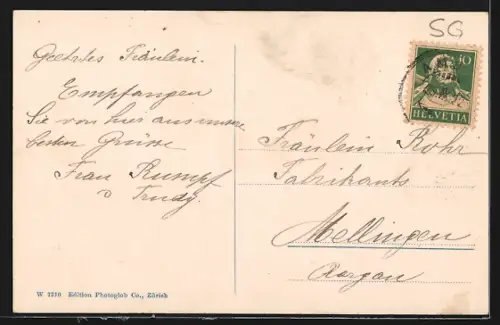 SG
10
HELVETIA
Geehrtes Fräulein.
Empfangen
Sie von hier aus unsere
besten Grüsse
Frau Rumpf
& Trudy.
Fräulein Rohr
Fabrikants
Mellingen
Aargau
W 7210 Edition Photoglob Co., Zürich